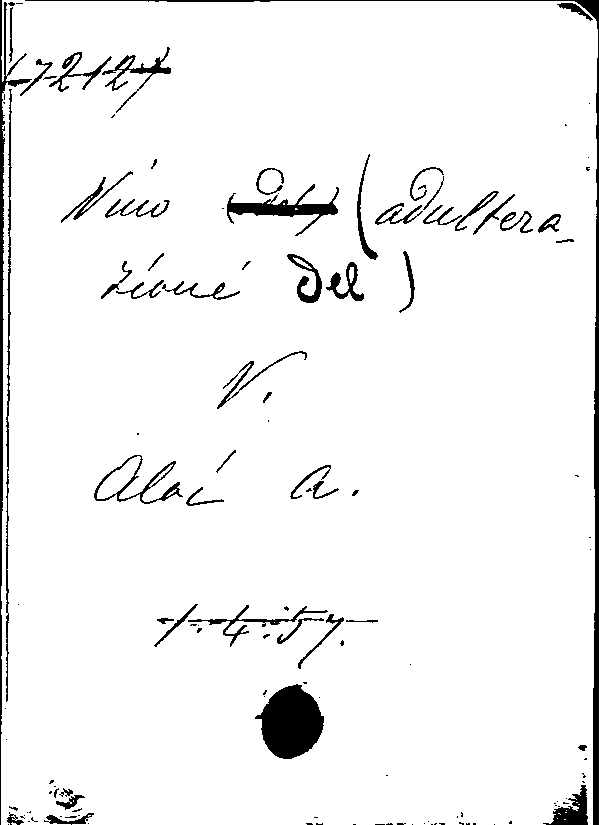 (7212)
Vino (del) (adultera-
zione del)
V.
Aloi A.
1.4.57.